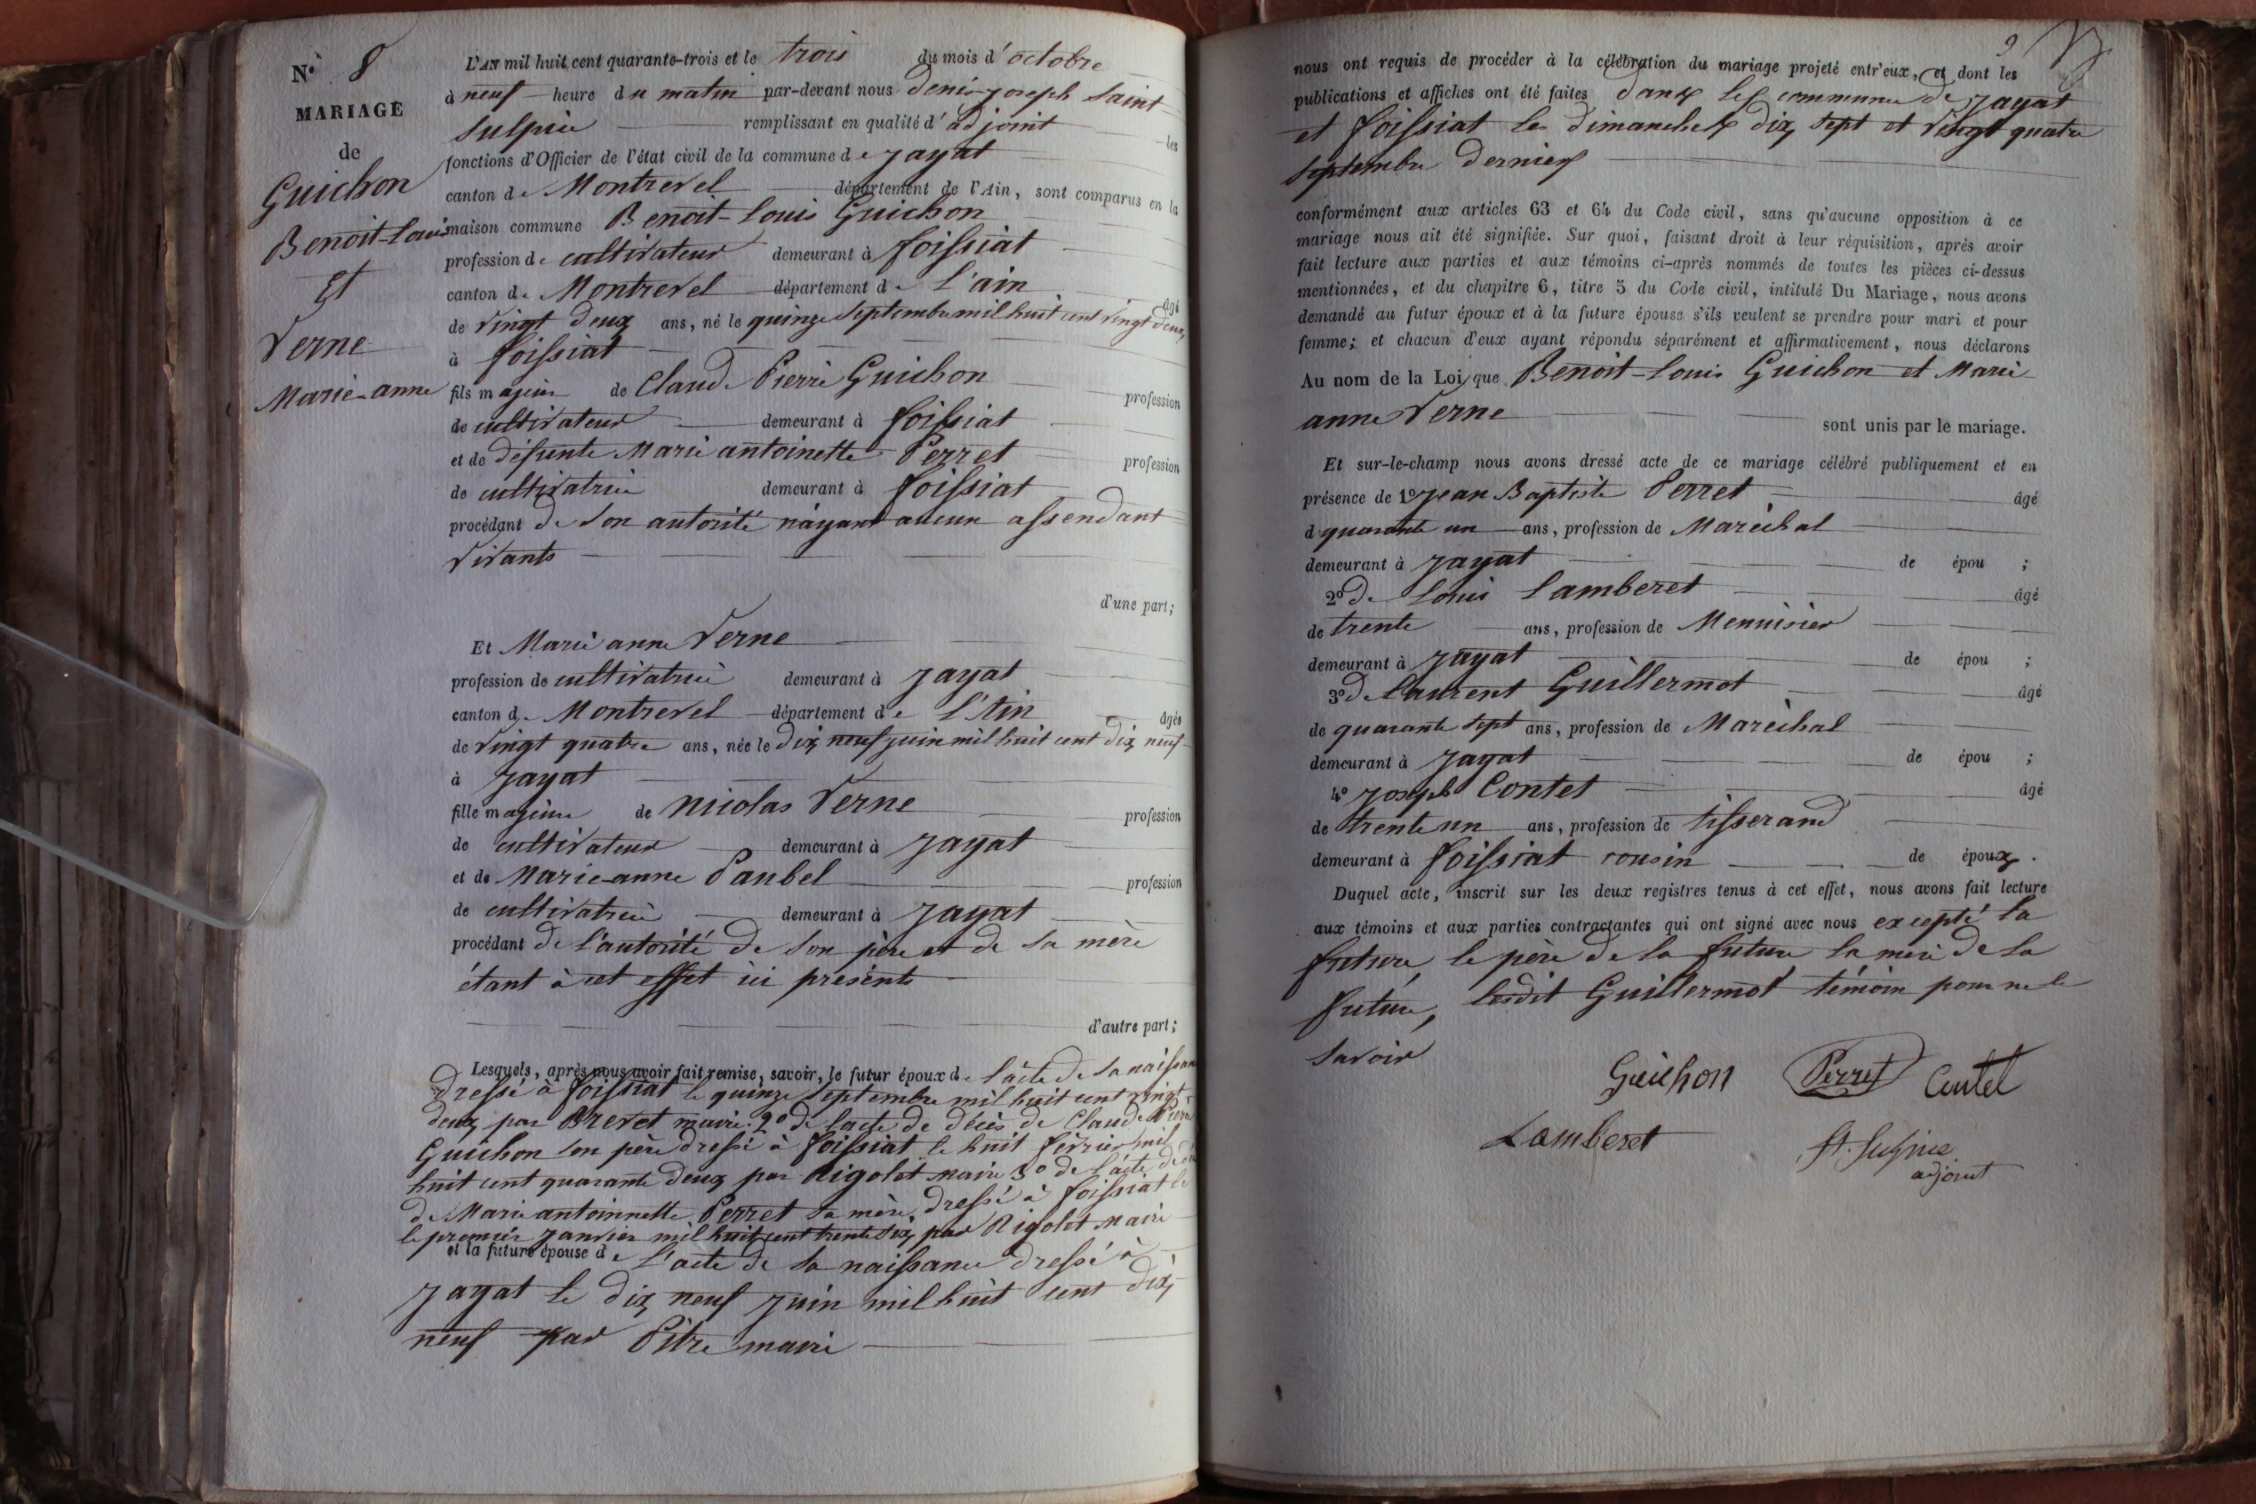 N.° 8
MARIAGE
de
Guichon
Benoit-Louis
Et
Verne
Marie-anne
L'AN mil huit cent quarante-trois et le trois du mois d'octobre
à neuf heure du matin par-devant nous Denis joseph Saint
Sulpice remplissant en qualité d'adjoint les
fonctions d'Officier de l'état civil de la commune de jayat
canton de Montrevel département de l'Ain, sont comparus en la
maison commune Benoit-Louis Guichon
profession de cultivateur demeurant à foissiat
canton de Montrevel département de L'ain âgé
de vingt deux ans, né le quinze septembre mil huit cent vingt deux,
à foissiat
fils majeur de Claude Pierre Guichon profession
de cultivateur demeurant à foissiat
et de défunte Marie antoinette Perret profession
de cultivatrice demeurant à foissiat
procédant de son autorité n'ayant aucun assendant
vivants
d'une part;
Et Marie anne Verne
profession de cultivatrice demeurant à jayat
canton de Montrevel département de L'Ain âgée
de vingt quatre ans, née le dix neuf juin mil huit cent dix neuf
à jayat
fille majeure de nicolas Verne profession
de cultivateur demeurant à jayat
et de Marie-anne Paubel profession
de cultivatrice demeurant à jayat
procédant de l'autorité de son père et de sa mère
étant à cet effet ici présents
d'autre part;
Lesquels, après nous avoir fait remise, savoir, le futur époux de l'acte de sa naissan
dressé à foissiat le quinze septembre mil huit cent vingt
deux par Brevet maire 2° de l'acte de décès de Claude Pierre
Guichon son père dressé à foissiat le huit février mil
huit cent quarante deux par Rigolot maire 3° de l'acte de
de Marie antoinnette Perret sa mère dressé à foissiat le
le premier janvier mil huit cent trente dix par Rigolot maire
et la future épouse de L'acte de sa naissance dressé à
jayat le dix neuf juin mil huit cent dix
neuf par Pitre maire
9
nous ont requis de procéder à la célébration du mariage projeté entr'eux, et dont les
publications et affiches ont été faites dans les communes de jayat
et foissiat les dimanches dix sept et vingt quatre
septembre derniers
conformément aux articles 63 et 64 du Code civil, sans qu'aucune opposition à ce
mariage nous ait été signifiée. Sur quoi, faisant droit à leur réquisition, après avoir
fait lecture aux parties et aux témoins ci-après nommés de toutes les pièces ci-dessus
mentionnées, et du chapitre 6, titre 5 du Code civil, intitulé Du Mariage, nous avons
demandé au futur époux et à la future épouse s'ils veulent se prendre pour mari et pour
femme; et chacun d'eux ayant répondu séparément et affirmativement, nous déclarons
Au nom de la Loi, que Benoit-Louis Guichon et Marie
anne Verne sont unis par le mariage.
Et sur-le-champ nous avons dressé acte de ce mariage célébré publiquement et en
présence de 1° jean Baptiste Perret âgé
d quarante un ans, profession de Maréchal
demeurant à jayat de épou ;
2° de Louis Lamberet âgé
de trente ans, profession de Menuisier
demeurant à jayat de épou ;
3° de Laurent Guillermot âgé
de quarante sept ans, profession de Maréchal
demeurant à jayat de épou ;
4° joseph Contet âgé
de trente un ans, profession de tisserand
demeurant à foissiat cousin de époux.
Duquel acte, inscrit sur les deux registres tenus à cet effet, nous avons fait lecture
aux témoins et aux parties contractantes qui ont signé avec nous excepté la
future, le père de la future la mère de la
future, Ledit Guillermot témoin pour ne le
savoir
Guichon Perret Contet
Lamberet St. Sulpice
adjoint